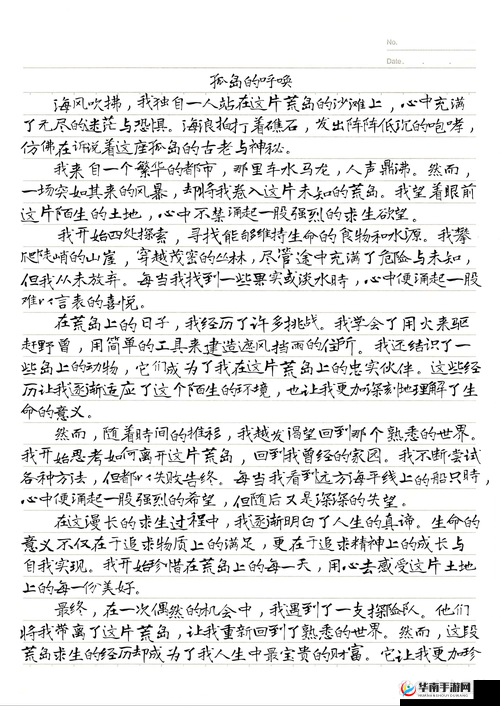 No.
Date.
孤岛的呼唤
海风吹拂，我独自一人站在这片荒岛的沙滩上，心中充满
了无尽的迷茫与恐惧。海浪拍打着礁石，发出阵阵低沉的咆哮，
仿佛在诉说着这座孤岛的古老与神秘。
我来自一个繁华的都市，那里车水马龙，人声鼎沸。然而，
一场突如其来的风暴，却将我卷入这片未知的荒岛。我望着眼前
这片陌生的土地，心中不禁涌起一股强烈的求生欲望。
我开始四处探索，寻找能够维持生命的食物和水源。我攀
爬陡峭的山崖，穿越茂密的丛林，尽管途中充满了危险与未知，
但我从未放弃。每当我找到一些果实或淡水时，心中便涌起一股
难以言表的喜悦。
在荒岛上的日子，我经历了许多挑战。我学会了用火来驱
赶野兽，用简单的工具来建造遮风挡雨的住所。我还结识了一
些岛上的动物，它们成为了我在这片荒岛上的忠实伙伴。这些经
历让我逐渐适应了这个陌生的环境，也让我更加深刻地理解了生
命的意义。
然而，随着时间的推移，我越发渴望回到那个熟悉的世界。
我开始思考如何离开这片荒岛，回到我曾经的家园。我不断尝试
各种方法，但都以失败告终。每当我看到远方海平线上的船只时，
心中便涌起一股强烈的希望，但随后又是深深的失望。
在这漫长的求生过程中，我逐渐明白了人生的真谛。生命的
意义不仅在于追求物质上的满足，更在于追求精神上的成长与
自我实现。我开始珍惜在荒岛上的每一天，用心去感受这片土地
上的每一份美好。
最终，在一次偶然的机会中，我遇到了一支探险队。他们
将我带离了这片荒岛，让我重新回到了熟悉的世界。然而，这段
荒岛求生的经历却成为了我人生中最宝贵的财富。它让我更加珍
华南手游网